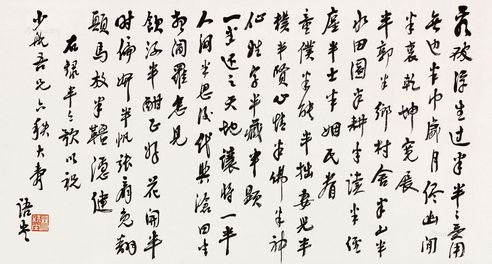 看破浮生过半半之受用
無边半中歲月侭幽闲
半裏乾坤寬展
半郭半鄉村舍半山半
水田園半耕半读半經
廛半士半姻民眷
童僕半能半拙妻兒半
樸半賢心情半佛半神
仙姓字半藏半顯
一半还之天地讓將一半
人间半思後代與滄田半
想阎羅怎見
飲酒半酣正好花開半
时偏妍半帆張扇免翻
顛馬放半韁穩便
右録半半歌以祝
少敏吾兄六秩大壽
語堂